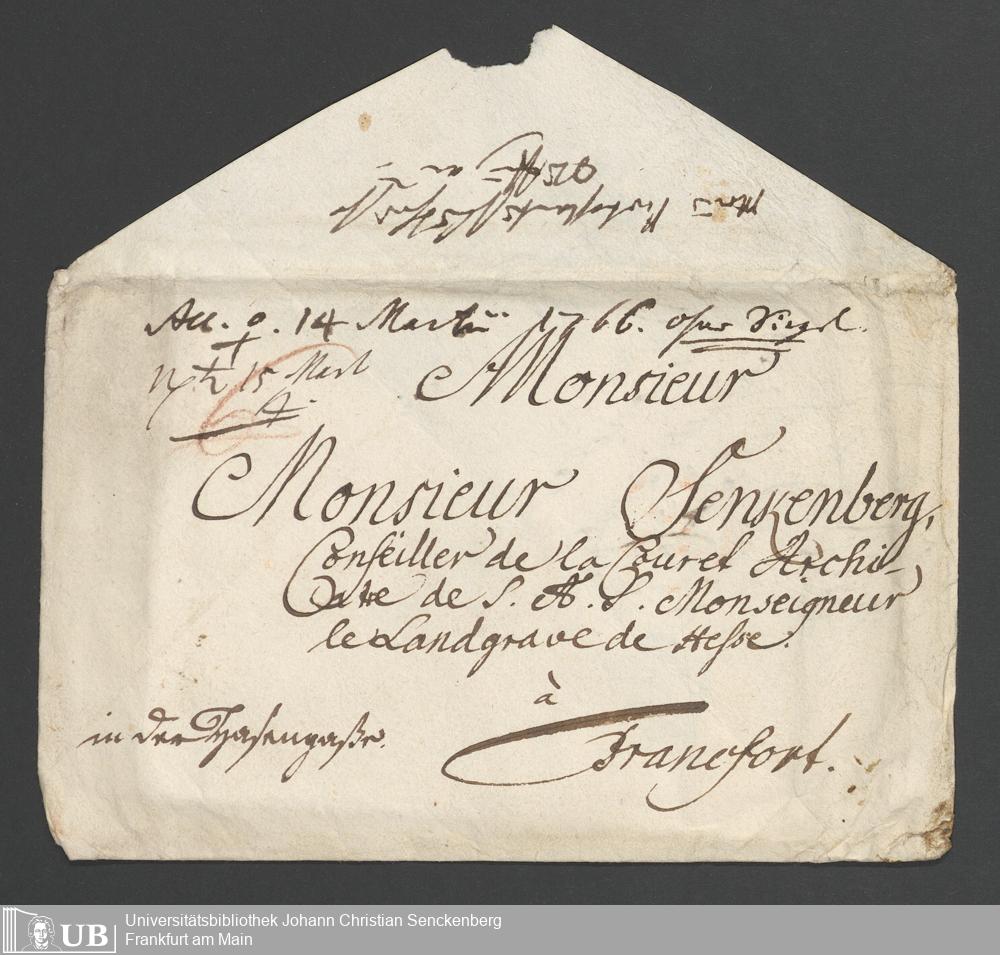 Acc. ♀. 14 Martii 1766. ohne Siegel.
♄ 15 Mart
Monsieur
Monsieur Senkenberg,
Conseiller de la Cour et Archi-
atre de S. A. S. Monseigneur
le Landgrave de Hesse.
à
in der Hasengaße.
Francfort.
UB
Universitätsbibliothek Johann Christian Senckenberg
Frankfurt am Main